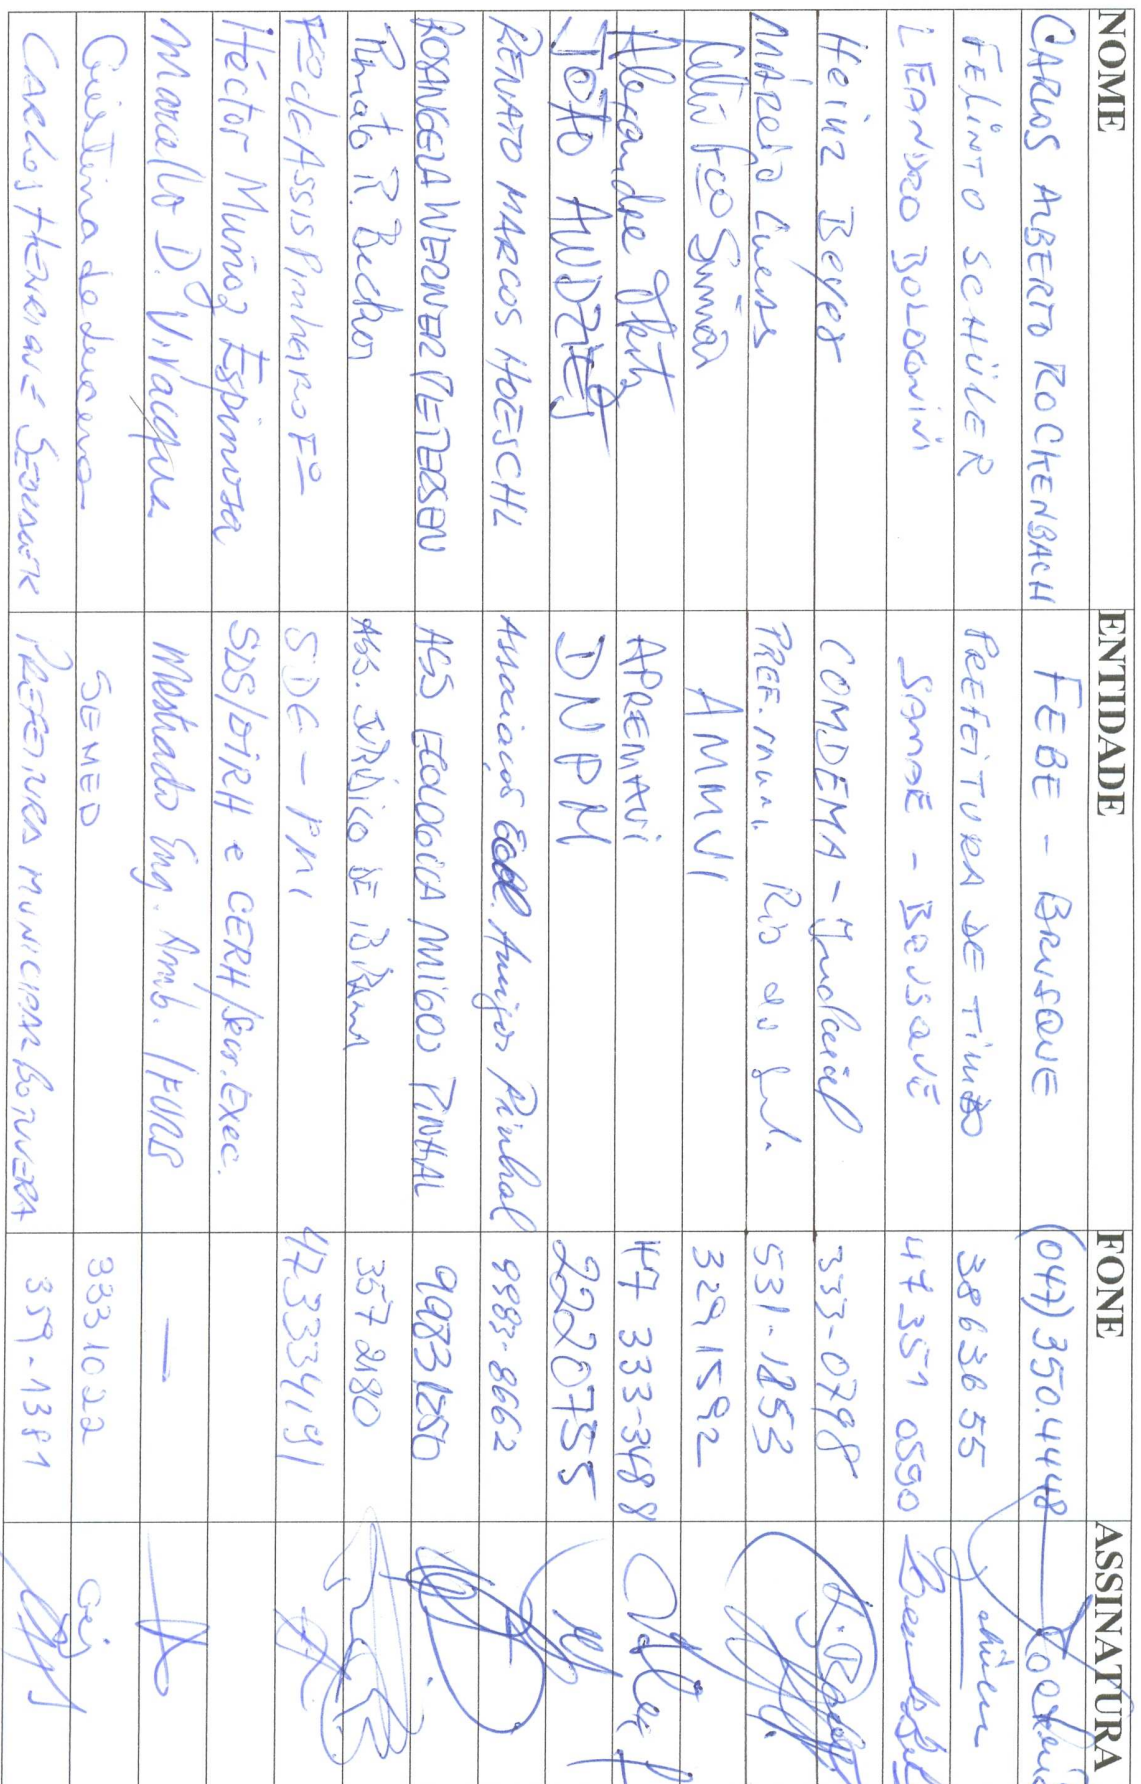 NOME ENTIDADE FONE ASSINATURA
CARLOS ALBERTO ROCKENBACH FEBE - BRUSQUE (047) 350.4448
FELINTO SCHÜLER PREFEITURA DE TIMBÓ 3863655
LEANDRO BOLOGNINI SAMAE - BRUSQUE 47 351 0500
Heinz Beyer COMDEMA - Indaial 333-0798 H. Beyer
MÁRCIO PREF. Mun. Rio do Sul. 531-1253
Fco AMMVI 3291592
Alexandre APREMAVI 47 333-3488
JOÃO AUDZIEJ DNPM 2220755
RENATO MARCOS HOESCHL Associação Ecol. Amigos Pinhal 9983-8662
ROSANGELA WERNER PETERSEN ASS ECOLOGICA AMIGOS PINHAL 99831250
Renato R. Becker ASS. JURÍDICO DE 357 2180
Fco de Assis Pinheiro Fº SDE - PMI 473334191
Héctor Muñoz Espinosa SDS/DIRH e CERH/Secr. Exec.
Marcello D. Vivacqua Mestrado Eng. Amb. /FURB —
Cristina de Lucena SEMED 3331022 Cris
CARLOS HENRIQUE PREFEITURA MUNICIPAL BOTUVERÁ 359-1381